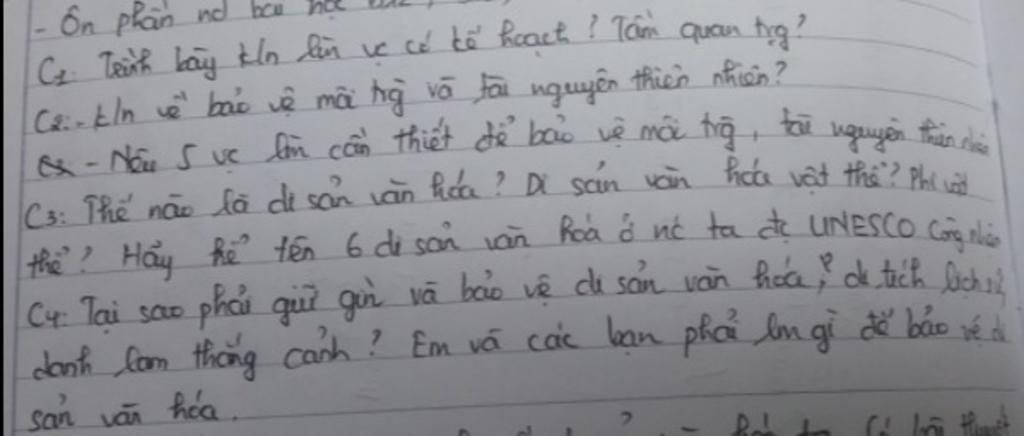 - Ôn phần
C1: Trình bày tln làm vc có kế hoạch? Tầm quan trg?
C2: - tln về bảo vệ môi trg và tài nguyên thiên nhiên?
- Nêu 5 vc làm cần thiết để bảo vệ môi trg, tài nguyên thiên nhiên
C3: Thế nào là di sản văn hóa? Di sản văn hóa vật thể? Phi vật
thể? Hãy kể tên 6 di sản văn hoá ở nc ta đc UNESCO công nhận
C4: Tại sao phải giữ gìn và bảo vệ di sản văn hóa, di tích lịch sử,
danh lam thắng cảnh? Em và các bạn phải lm gì để bảo vệ di
sản văn hóa.